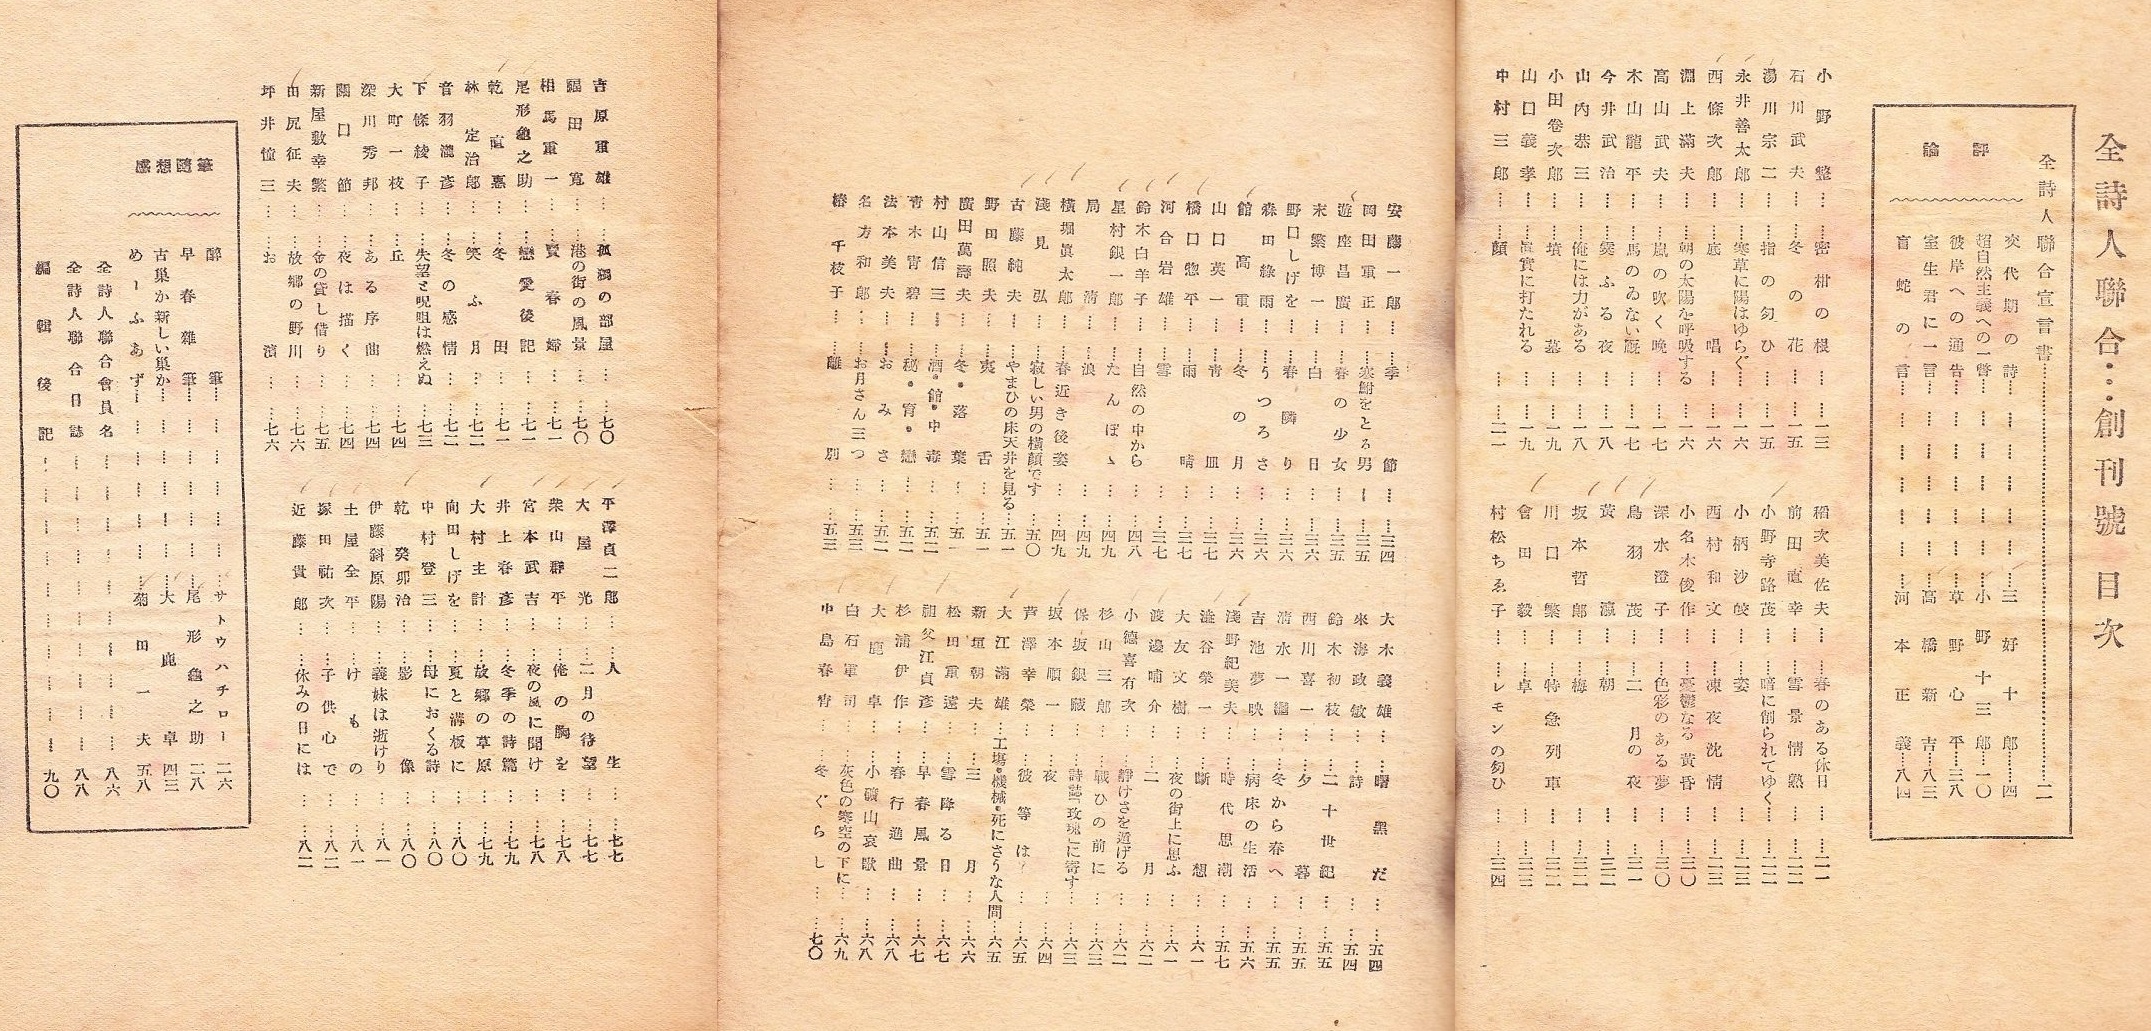 全詩人聯合…創刊號 目次
全詩人聯合宣言書……二
評論
交代期の詩……三好十郎……四
超自然主義への一瞥……小野十三郎……一〇
彼岸への通告……草野心平……三八
室生君に一言……高橋新吉……八三
盲蛇の言……河本正義……八四
小野整……密柑の根……一三
石川武夫……冬の花……一五
湯川宗二……指の匂ひ……一五
永井善太郎……寒草に陽はゆらぐ……一六
西條次郎……底唱……一六
淵上滿夫……朝の太陽を呼吸する……一六
高山武夫……嵐の吹く晩……一七
木山龍平……馬のゐない厩……一七
今井武治……霙ふる夜……一八
山内恭三……俺には力がある……一八
小田卷次郎……墳墓……一九
山口義孝……眞實に打たれる……一九
中村三郎……顏……二一
稻次美佐夫……春のある休日……二一
前田直幸……雪景情熟……二二
小野寺路茂……暗に削られてゆく……二二
小柄沙皎……姿……二三
西村和文……凍夜沈情……二三
小名木俊作……憂鬱なる黃昏……三〇
深水澄子……色彩のある夢……三〇
鳥羽茂……二月の夜……三一
黃瀛……朝……三二
坂本哲郎……梅……三二
川口繁……特急列車……三二
會田毅……卓……三三
村松ちゑ子……レモンの匂ひ……三四
安藤一郎……季節……三四
岡田軍正……寒鮒をとる男……三五
遊座昌廣……春の少女……三五
末繁博一……白日……三六
野口しげを……春隣り……三六
森田綠雨……うつろさ……三六
館高重……冬の月……三六
山口英一……青皿……三七
橋口惣平……雨晴……三七
河合岩雄……雪……三七
鈴木白羊子……自然の中から……四八
星村銀一郎……たんぽゝ……四九
局清……浪……四九
横堀眞太郎……春近き後姿……四九
淺見弘……寂しい男の橫顏です……五〇
古藤純夫……やまひの床天井を見る……五一
野田照夫……夷舌……五一
廣田萬壽夫……冬・落葉……五一
村山信三……酒・館・中毒……五二
青木青碧……秘・宵・戀……五二
法本美夫……おみさ……五二
名方和郎……お月さん三つ……五三
椿千枝子……離別……五三
大木義雄……曙黑だ……五四
來海政敏……詩……五四
鈴木初枝……二十世紀……五五
西川喜一……夕暮……五五
清水一繼……冬から春へ……五五
吉池夢映……病床の生活……五六
淺野紀美夫……時代思潮……五七
澁谷榮一……斷想……六一
大友文樹……夜の街上に思ふ……六一
渡邊哺介……二月……六二
小德喜有次……靜けさを逍げる……六二
杉山三郎……戰ひの前に……六三
保坂銀藏……詩誌「玫瑰」に寄す……六三
坂本順一……夜……六四
芦澤幸榮……彼等は……六五
大江滿雄……工場・機械・死にさうな人間……六五
新垣朝夫……三月……六六
松田重遠……雪降る日……六七
祖父江貞彥……早春風景……六七
杉浦伊作……春行進曲……六八
大鹿卓……小礦山哀歌……六八
白石軍司……灰色の寒空の下に……六九
中島春宵……冬ぐらし……七〇
吉原重雄……孤獨の部屋……七〇
福田寬……港の街の風景……七〇
相馬重一……賣春婦……七一
尾形龜之助……戀愛後記……七一
乾直惠……冬田……七一
林定治郎……笑ふ月……七二
音羽瀧彥……冬の感情……七二
下條綾子……失望と呪咀は燃えぬ……七三
大町一枝……丘……七四
深川秀邦……ある序曲……七四
關口節……夜は描く……七四
新屋敷幸繁……金の貸し借り……七五
田尻征夫……故鄉の野川……七六
坪井憧三……お濱……七六
平澤貞二郎……人生……七七
大屋光……二月の待望……七七
柴山群平……俺の胸を……七八
宮本武吉……夜の風に聞け……七八
井上春彥……冬季の詩篇……七九
大村主計……故鄉の草原……七九
向田しげを……夏と溝板に……八〇
中村登三……母におくる詩……八〇
乾癸卯治……影像……八〇
伊藤斜原陽……義妹は逝けり……八一
土屋全平……けもの……八一
塚田祐次……子供心で……八二
近藤貴郎……休みの日には……八二
感想隨筆
醉筆……サトウハチロー……二六
早春雜筆……尾形龜之助……二八
古巢か新しい巢か……大鹿卓……四三
めーふあず……菊田一夫……五八
全詩人聯合會員名……八六
全詩人聯合日誌……八八
編輯後記……九〇